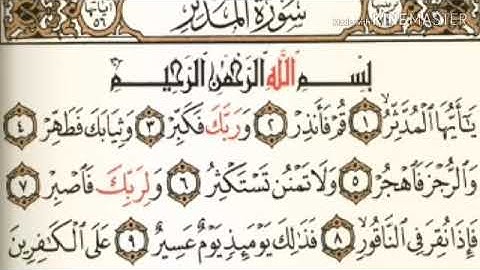 سورة المدثر
آياتها ٥٦
Made with KINEMASTER
بِسْمِ اللَّهِ الرَّحْمَٰنِ الرَّحِيمِ
يَٰٓأَيُّهَا ٱلْمُدَّثِّرُ ١ قُمْ فَأَنذِرْ ٢ وَرَبَّكَ فَكَبِّرْ ٣ وَثِيَابَكَ فَطَهِّرْ ٤
وَٱلرُّجْزَ فَٱهْجُرْ ٥ وَلَا تَمْنُن تَسْتَكْثِرُ ٦ وَلِرَبِّكَ فَٱصْبِرْ ٧
فَإِذَا نُقِرَ فِى ٱلنَّاقُورِ ٨ فَذَٰلِكَ يَوْمَئِذٍ يَوْمٌ عَسِيرٌ ٩ عَلَى ٱلْكَٰفِرِينَ